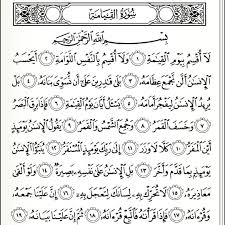 سُورَةُ الْقِيَامَةِ
بِسْمِ اللَّهِ الرَّحْمَٰنِ الرَّحِيمِ
لَا أُقْسِمُ بِيَوْمِ الْقِيَٰمَةِ ١ وَلَا أُقْسِمُ بِالنَّفْسِ اللَّوَّامَةِ ٢ أَيَحْسَبُ
الْإِنسَٰنُ أَلَّن نَّجْمَعَ عِظَامَهُ ٣ بَلَىٰ قَٰدِرِينَ عَلَىٰ أَن نُّسَوِّيَ بَنَانَهُ ٤ بَلْ
يُرِيدُ الْإِنسَٰنُ لِيَفْجُرَ أَمَامَهُ ٥ يَسْـَٔلُ أَيَّانَ يَوْمُ الْقِيَٰمَةِ ٦ فَإِذَا بَرِقَ الْبَصَرُ
٧ وَخَسَفَ الْقَمَرُ ٨ وَجُمِعَ الشَّمْسُ وَالْقَمَرُ ٩ يَقُولُ الْإِنسَٰنُ
يَوْمَئِذٍ أَيْنَ الْمَفَرُّ ١٠ كَلَّا لَا وَزَرَ ١١ إِلَىٰ رَبِّكَ يَوْمَئِذٍ الْمُسْتَقَرُّ ١٢ يُنَبَّؤُا الْإِنسَٰنُ
يَوْمَئِذٍ بِمَا قَدَّمَ وَأَخَّرَ ١٣ بَلِ الْإِنسَٰنُ عَلَىٰ نَفْسِهِ بَصِيرَةٌ ١٤ وَلَوْ أَلْقَىٰ
مَعَاذِيرَهُ ١٥ لَا تُحَرِّكْ بِهِ لِسَانَكَ لِتَعْجَلَ بِهِ ١٦ إِنَّ عَلَيْنَا جَمْعَهُ
وَقُرْءَانَهُ ١٧ فَإِذَا قَرَأْنَٰهُ فَاتَّبِعْ قُرْءَانَهُ ١٨ ثُمَّ إِنَّ عَلَيْنَا بَيَانَهُ ١٩